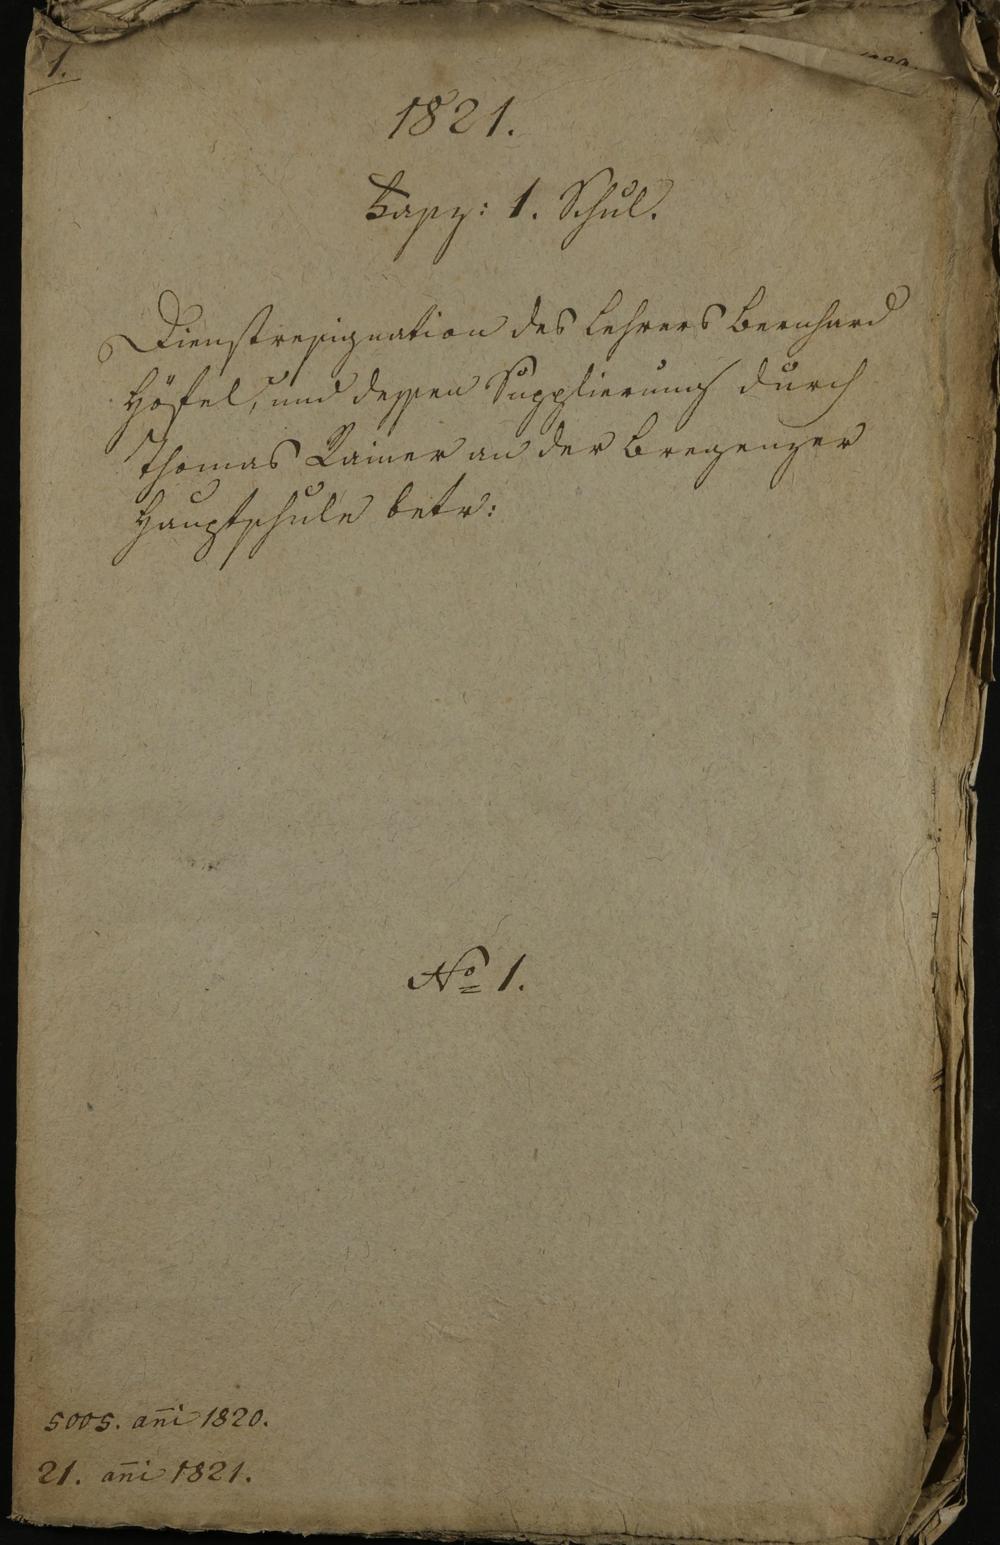 1.
1821.
Fasz: 1. Schul.
Dienstresignation des Lehrers Bernhard
Höfel, und dessen Supplierung durch
Thomas Rainer an der Bregenzer
Hauptschule betr:
No 1.
5005. añi 1820.
21. añi 1821.